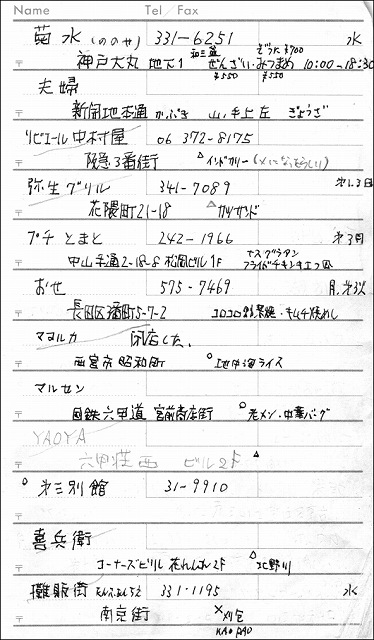 Name Tel / Fax
菊水(ののせ) 331-6251 水
ぞうに ¥700
神戸大丸 地下1 ぜんざい・みつまめ 10:00-18:30
¥550 ¥550
夫婦
新開地本通 かぶき 山手上左 ぎょうざ
リビエール中村屋 06 372-8175
阪急3番街 △インドカリー(×になったらしい)
弥生グリル 341-7089 第1.3日
花隈町21-18 △カツサンド
プチとまと 242-1966 第3月
中山手通2-18-8 ビル1F ナスグラタン
フライドチキン
おせ 575-7469 月,第3火
長田区 5-7-2 コロコロ 焼・キムチ焼めし
マヨルカ 閉店した、
西宮市 昭和町 ○地中海ライス
マルセン
国鉄六甲道 宮前商店街 ○ メン・中華バーグ
YAOYA
六甲荘西 ビル2F △
○ 第三別館 31-9910
喜兵衛
コーナーズビル 2F △北野川
攤販街 331-1195 水
南京街 ×刈包
KAO PAO